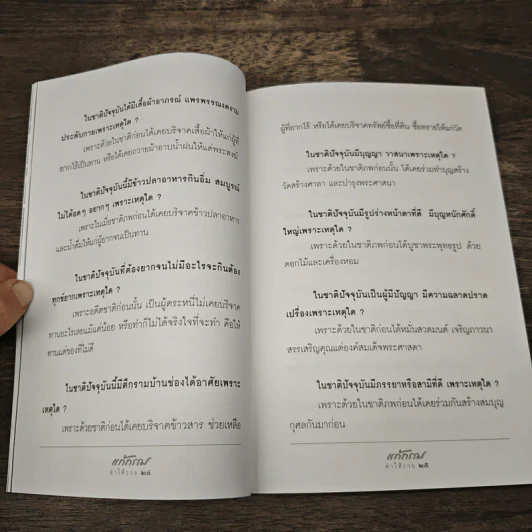 ในชาติปัจจุบันได้มีเสื้อผ้าอาภรณ์ แพรพรรณงดงาม
ประดับกายเพราะเหตุใด ?
เพราะด้วยในชาติก่อนได้เคยบริจาคเสื้อผ้าให้แก่ผู้ที่
ยากไร้เป็นทาน หรือได้เคยถวายผ้าอาบน้ำฝนให้แด่พระสงฆ์
ในชาติปัจจุบันนี้มีข้าวปลาอาหารกินอิ่ม สมบูรณ์
ไม่ได้อดๆ อยากๆ เพราะเหตุใด ?
เพราะในเมื่อชาติภพก่อนได้เคยบริจาคข้าวปลาอาหาร
และน้ำดื่มให้แก่ผู้ยากจนเป็นทาน
ในชาติปัจจุบันที่ต้องยากจนไม่มีอะไรจะกินต้อง
ทุกข์ยากเพราะเหตุใด ?
เพราะอดีตชาติก่อนนั้น เป็นผู้ตระหนี่ไม่เคยบริจาค
ทานอะไรเลยแม้แต่น้อย หรือทำก็ไม่ได้จริงใจที่จะทำ คือให้
ทานแต่ของที่ไม่ดี
ในชาติปัจจุบันนี้มีตึกรามบ้านช่องได้อาศัยเพราะ
เหตุใด ?
เพราะด้วยชาติก่อนได้เคยบริจาคข้าวสาร ช่วยเหลือ
แก้กรรม
ทำให้รวย ๒๔
ผู้ที่ยากไร้ หรือได้เคยบริจาคทรัพย์ซื้อที่ดิน ซื้อทรายให้แก่วัด
ในชาติปัจจุบันมีบุญญา วาสนาเพราะเหตุใด ?
เพราะด้วยในชาติภพก่อนนั้น ได้เคยร่วมทำบุญสร้าง
วัดสร้างศาลา และบำรุงพระศาสนา
ในชาติปัจจุบันมีรูปร่างหน้าตาที่ดี มีบุญหนักศักดิ์
ใหญ่เพราะเหตุใด ?
เพราะด้วยในชาติภพก่อนได้บูชาพระพุทธรูป ด้วย
ดอกไม้และเครื่องหอม
ในชาติปัจจุบันเป็นผู้มีปัญญา มีความฉลาดปราด
เปรื่องเพราะเหตุใด ?
เพราะด้วยในชาติก่อนได้หมั่นสวดมนต์ เจริญภาวนา
สรรเสริญคุณแด่องค์สมเด็จพระศาสดา
ในชาติปัจจุบันมีภรรยาหรือสามีที่ดี เพราะเหตุใด ?
เพราะด้วยในชาติภพก่อนได้เคยร่วมกันสร้างสมบุญ
กุศลกันมาก่อน
แก้กรรม
ทำให้รวย ๒๕